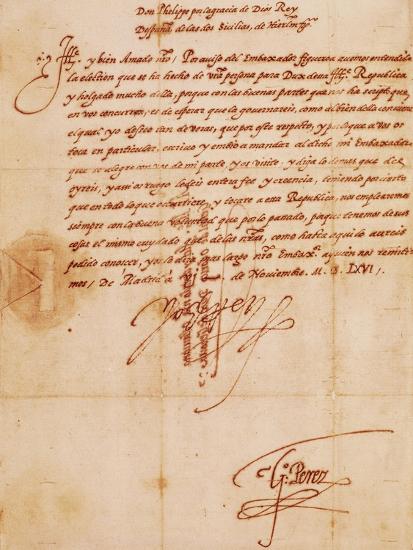 Don Phelippe por la gracia de Dios Rey
Despaña de las dos Sicilias, de Hierlm. &.
Ill.e y bien Amado nro, Por auiso del Embaxador figueroa auemos entendido
la election que se ha hecho de vra persona para Dux dessa Ill.e Republica
y holgado mucho della, porque con las buenas partes que nos ha scripto que
en vos concurren, es de esperar que la gouernareis, como al bien della conuiene
el qual yo desseo tan deveras, que por este respecto, y por lo que a vos os
toca en particular, escriuo y embio a mandar al dicho mi Embaxador
que se alegre con vos de mi parte, y os visite, y diga lo demas que del
oyreis, y assi os ruego le deis entera fee y creencia, teniendo por cierto
que en todo lo que os , y tocare a essa Republica, nos emplearemos
siempre con la buena voluntad que por lo passado, porque tenemos de sus
cosas el mismo cuydado que de las nras, como hasta aqui lo aureis
podido conoscer, y os lo dira mas largo nro Embax.or a quien nos remiti-
mos, De Madrid à de Nouiembre. M. D. LXVI.
Yo el Rey
G.o Perez